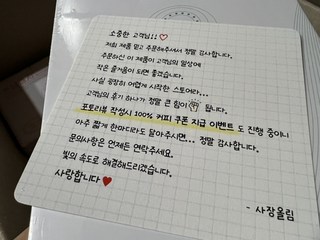 소중한 고객님!! ♡
저희 제품 믿고 주문해주셔서 정말 감사합니다.
주문하신 이 제품이 고객님의 일상에
작은 즐거움이 되면 좋겠습니다.
사실 굉장히 어렵게 시작한 스토어라...
고객님의 후기 하나가 정말 큰 힘이 됩니다.
포토리뷰 작성시 100% 커피 쿠폰 지급 이벤트 도 진행 중이니
아주 짧게 한마디라도 달아주시면... 정말 감사합니다.
문의사항은 언제든 연락주세요.
빛의 속도로 해결해드리겠습니다.
사랑합니다 ♥
- 사장올림